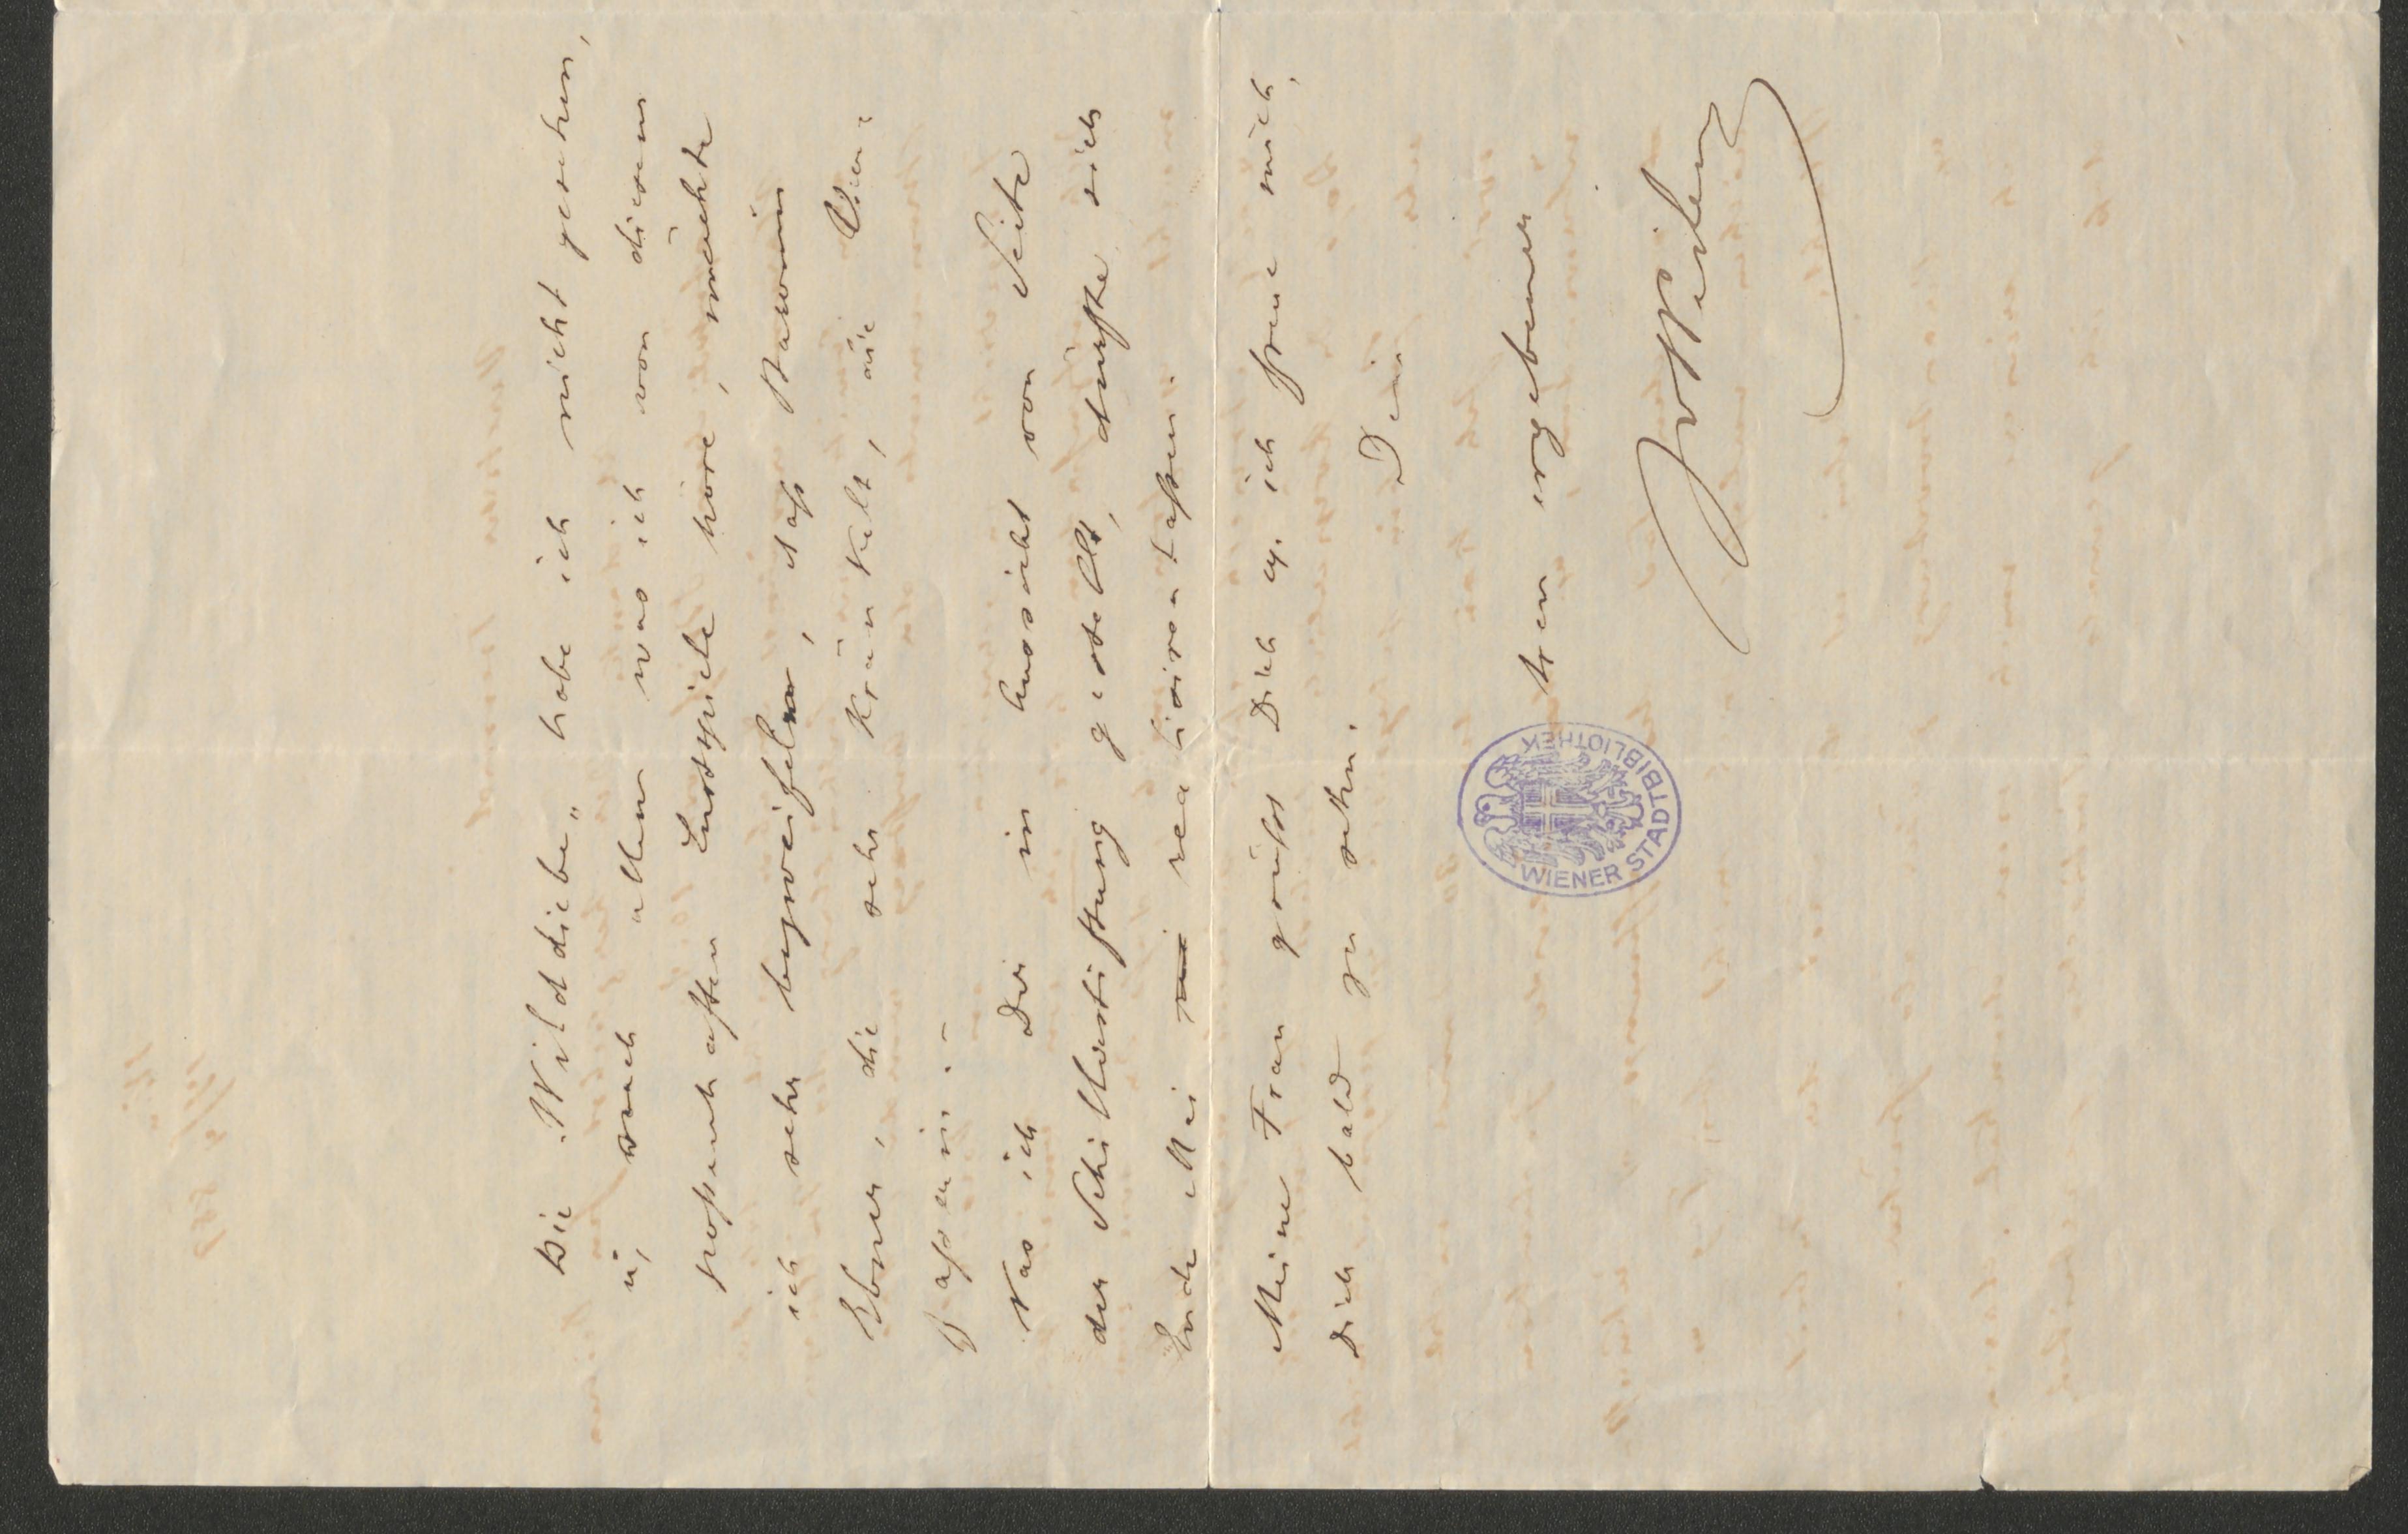 Die „Wilddiebe“ habe ich nicht gesehen,
u, nach allem was ich von diesem
possenhaften Lustspiele höre, möchte
ich sehr bezweifeln, daß Baronin
Ebner, die sehr kränkelt, die Vier-
passeni. –
Was ich Dir in Aussicht von Seite
der Schillerstiftung gestellt, dürfte sich
Ende Mai realisiren laßen.
Meine Frau grüßt Dich u. ich freue mich,
Dich bald zu sehen.
Dein
treu ergebener
JvWeilen
WIENER STADTBIBLIOTHEK